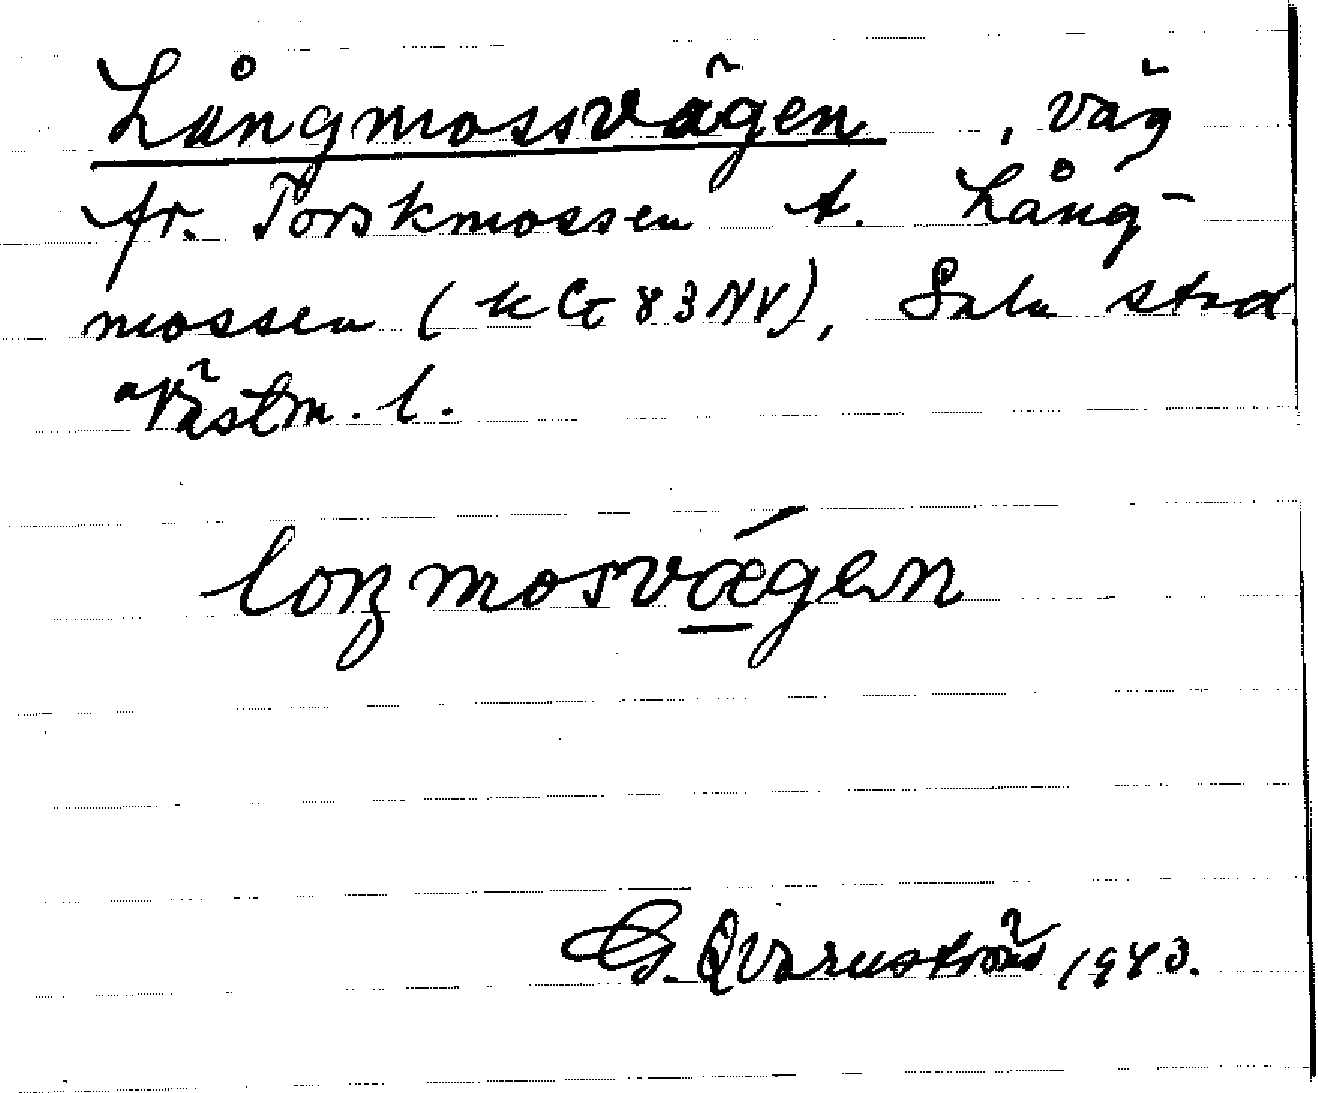 Långmossvägen, väg
fr. Torskmossen t. Lång-
mossen (k G 83 NV), Sala stad
Västm. l.
loŋmosvægen
G. Qvarnström 1943.